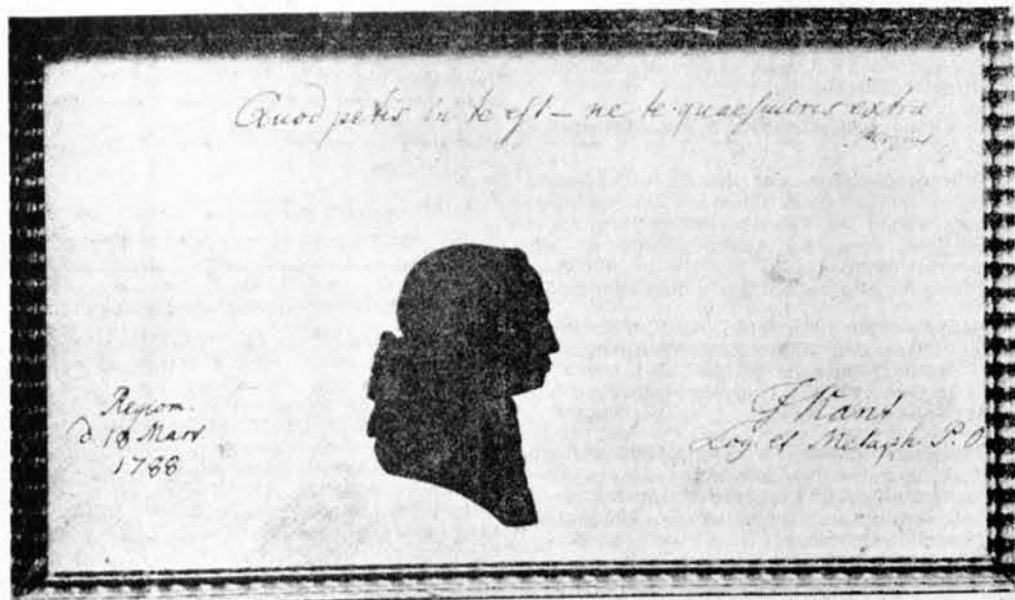 Quod petis in te est – ne te quaesiveris extra
Persius
Regiom.
d 18 Mart
1788
I Kant
Log. et Metaph. P. O